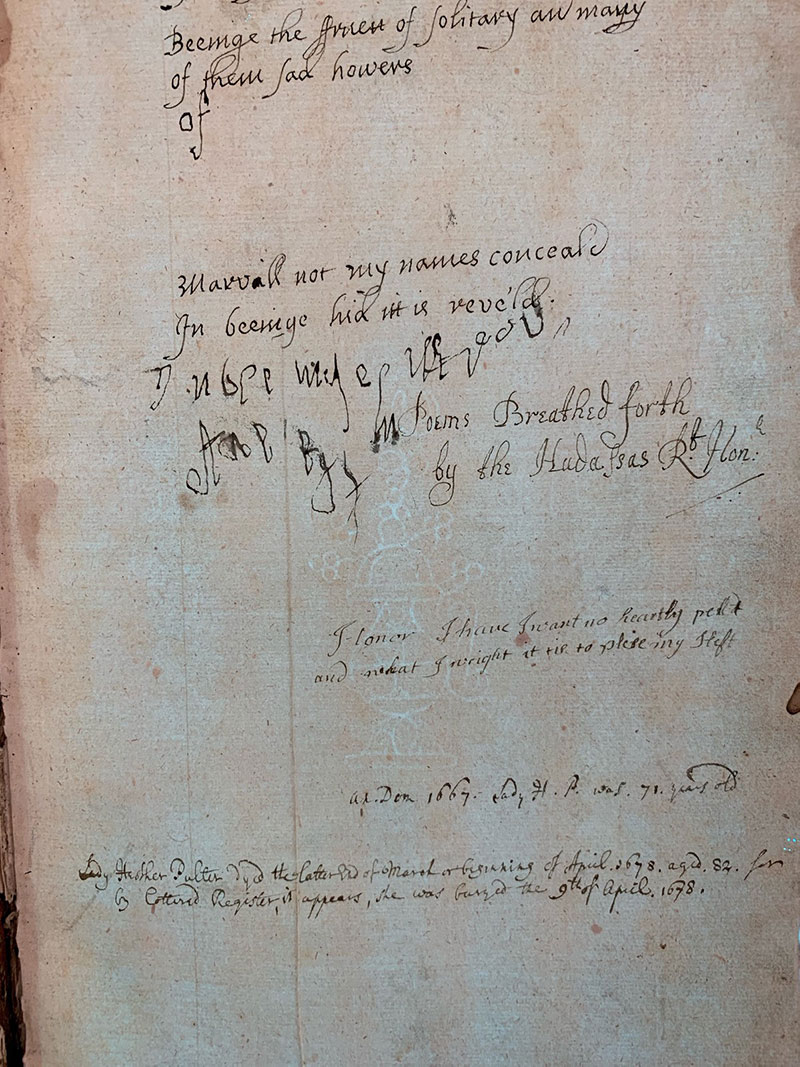 Beeinge the of solitary an many
of them sad howers
of
Marvall not my names conceal'd
In beeinge hid itt is reve'ld.
Poems Breathed forth
by the Hadassas Rt. Hon:e
Honor I have I want no pelft
and what I wright it tis to plese my sleft
An. Dom 1667. Lady H. P. was. 71. years old
Lady Hesther Pulter Dyed the latter End of March or beginning of April. 1678. aged. 82. for
by Cottered Register, it appears, she was buryed the 9th of April. 1678.